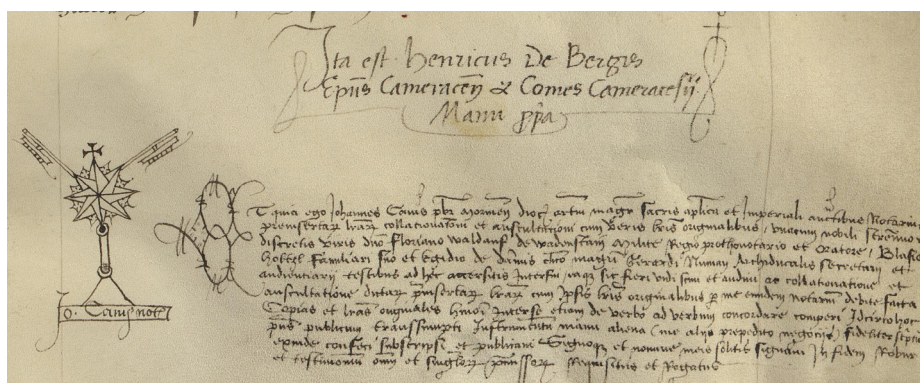 Ita est Henricus De Bergis
Ep̃us Cameraceñ & Comes Cameracesij
Manu p̃p̃a
Et quia ego Johannes Canis p̃br Morineñ dioc̃ artiũ magr̃ sacris ap̃lica et Imperiali auctĩbus Notariu
premissetaꝝ l̃raꝝ collationatoni et auscultationi cum veris l̃ris originalibus / vnacum nobili strenuo
discretis viris dño Floriano Waldauf de Wadenstain Milite Regio prothonotario et Oratore / Blasio
Holtzl familiari suo et Egidio de Dam̃is c̃lico mag̃ri Gerardi Numan Archiducalis secretarij et
audienciarij testibus ad hec accersitis Interfui eaq̃ꝫ sic fieri vidi sciui et audiui ac collationatione et
auscultatione dictaꝝ p̃insertaꝝ l̃raꝝ cum ip̃is l̃ris originalibus p̃ me eundem notariũ debite facta
Copias et l̃ras originales hm̃oi Interse etiam de verbo ad verbum concordare comperi Idcirco hoc
p̃ns publicum transsumpti Instrumentũ manu aliena (me alijs prepedito negocijs) fideliter sc̃ptu
exinde confeci subscripsi et publicaui Signoqꝫ et nomine meis solitis signaui In fidem Robur
et testimoniũ om̃i et singloꝝ p̃missoꝝ Requisitus et Rogatus
Jo. Canis not̃